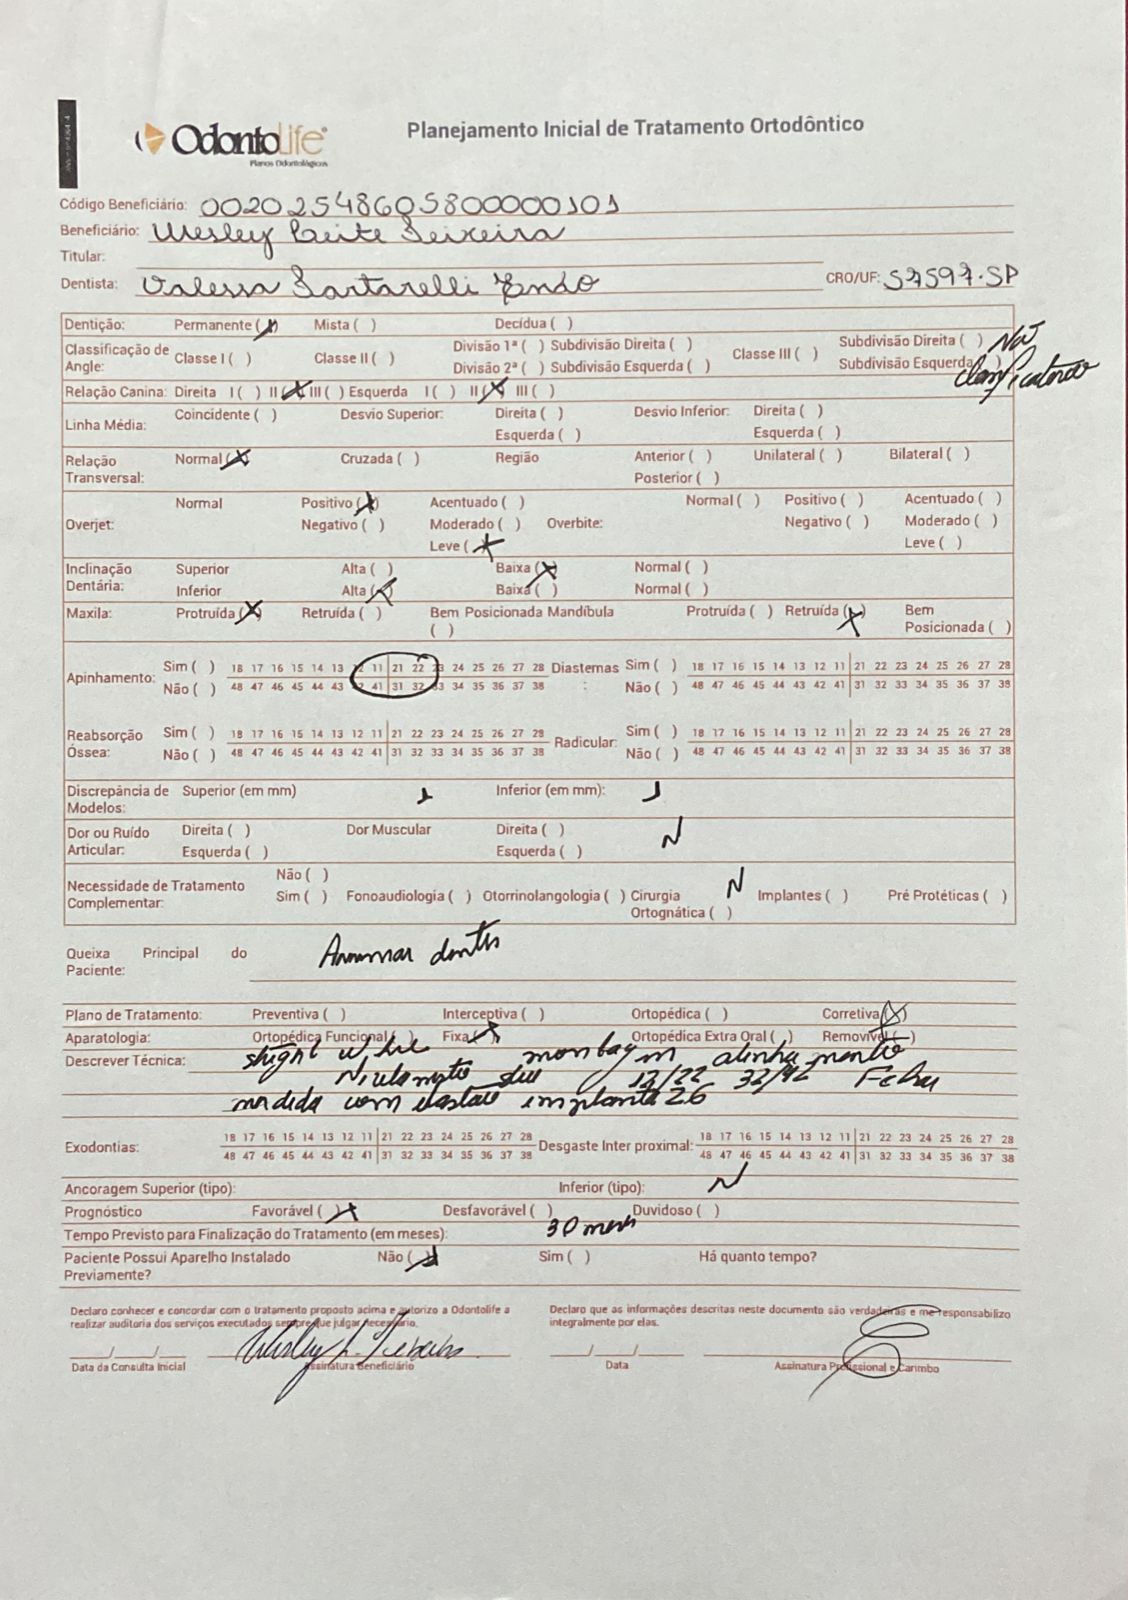 OdontoLife
Planos Odontológicos
Planejamento Inicial de Tratamento Ortodôntico
Código Beneficiário: 00202548605800000101
Beneficiário: Wesley Leite Teixeira
Titular:
Dentista: Valessa Sartarelli Endo CRO/UF: 57597-SP
Dentição: Permanente (X) Mista ( ) Decídua ( )
Classificação de Angle: Classe I ( ) Classe II ( ) Divisão 1ª ( ) Subdivisão Direita ( ) Divisão 2ª ( ) Subdivisão Esquerda ( ) Classe III ( ) Subdivisão Direita ( ) Subdivisão Esquerda ( )
Relação Canina: Direita I ( ) II (X) III ( ) Esquerda I ( ) II (X) III ( )
Linha Média: Coincidente ( ) Desvio Superior: Direita ( ) Esquerda ( ) Desvio Inferior: Direita ( ) Esquerda ( )
Relação Transversal: Normal (X) Cruzada ( ) Região Anterior ( ) Posterior ( ) Unilateral ( ) Bilateral ( )
Overjet: Normal Positivo (X) Negativo ( ) Acentuado ( ) Moderado ( ) Leve (X) Overbite: Normal ( ) Positivo ( ) Negativo ( ) Acentuado ( ) Moderado ( ) Leve ( )
Inclinação Dentária: Superior Alta ( ) Baixa (X) Normal ( )
Inferior Alta (X) Baixa ( ) Normal ( )
Maxila: Protruída (X) Retruída ( ) Bem Posicionada ( ) Mandíbula Protruída ( ) Retruída (X) Bem Posicionada ( )
Apinhamento: Sim ( ) 18 17 16 15 14 13 12 11 21 22 23 24 25 26 27 28 Diastemas: Sim ( ) 18 17 16 15 14 13 12 11 21 22 23 24 25 26 27 28
Não ( ) 48 47 46 45 44 43 42 41 31 32 33 34 35 36 37 38 Não ( ) 48 47 46 45 44 43 42 41 31 32 33 34 35 36 37 38
Reabsorção Óssea: Sim ( ) 18 17 16 15 14 13 12 11 21 22 23 24 25 26 27 28 Radicular: Sim ( ) 18 17 16 15 14 13 12 11 21 22 23 24 25 26 27 28
Não ( ) 48 47 46 45 44 43 42 41 31 32 33 34 35 36 37 38 Não ( ) 48 47 46 45 44 43 42 41 31 32 33 34 35 36 37 38
Discrepância de Modelos: Superior (em mm) Inferior (em mm):
Dor ou Ruído Articular: Direita ( ) Esquerda ( ) Dor Muscular Direita ( ) Esquerda ( ) N
Necessidade de Tratamento Complementar: Não ( ) Sim ( ) Fonoaudiologia ( ) Otorrinolangologia ( ) Cirurgia Ortognática ( ) N Implantes ( ) Pré Protéticas ( )
Queixa Principal do Paciente: Arrumar dentes
Plano de Tratamento: Preventiva ( ) Interceptiva ( ) Ortopédica ( ) Corretiva (X)
Aparatologia: Ortopédica Funcional ( ) Fixa (X) Ortopédica Extra Oral ( ) Removível ( )
Descrever Técnica: montagem alinhamento
12/22 32/42
implante 26
Exodontias: 18 17 16 15 14 13 12 11 21 22 23 24 25 26 27 28 Desgaste Inter proximal: 18 17 16 15 14 13 12 11 21 22 23 24 25 26 27 28
48 47 46 45 44 43 42 41 31 32 33 34 35 36 37 38 48 47 46 45 44 43 42 41 31 32 33 34 35 36 37 38
Ancoragem Superior (tipo): Inferior (tipo): N
Prognóstico Favorável (X) Desfavorável ( ) Duvidoso ( )
Tempo Previsto para Finalização do Tratamento (em meses): 30 meses
Paciente Possui Aparelho Instalado Previamente? Não (X) Sim ( ) Há quanto tempo?
Declaro conhecer e concordar com o tratamento proposto acima e autorizo a Odontolife a realizar auditoria dos serviços executados sempre que julgar necessário.
Declaro que as informações descritas neste documento são verdadeiras e me responsabilizo integralmente por elas.
Data da Consulta Inicial Assinatura Beneficiário Data Assinatura Profissional e Carimbo